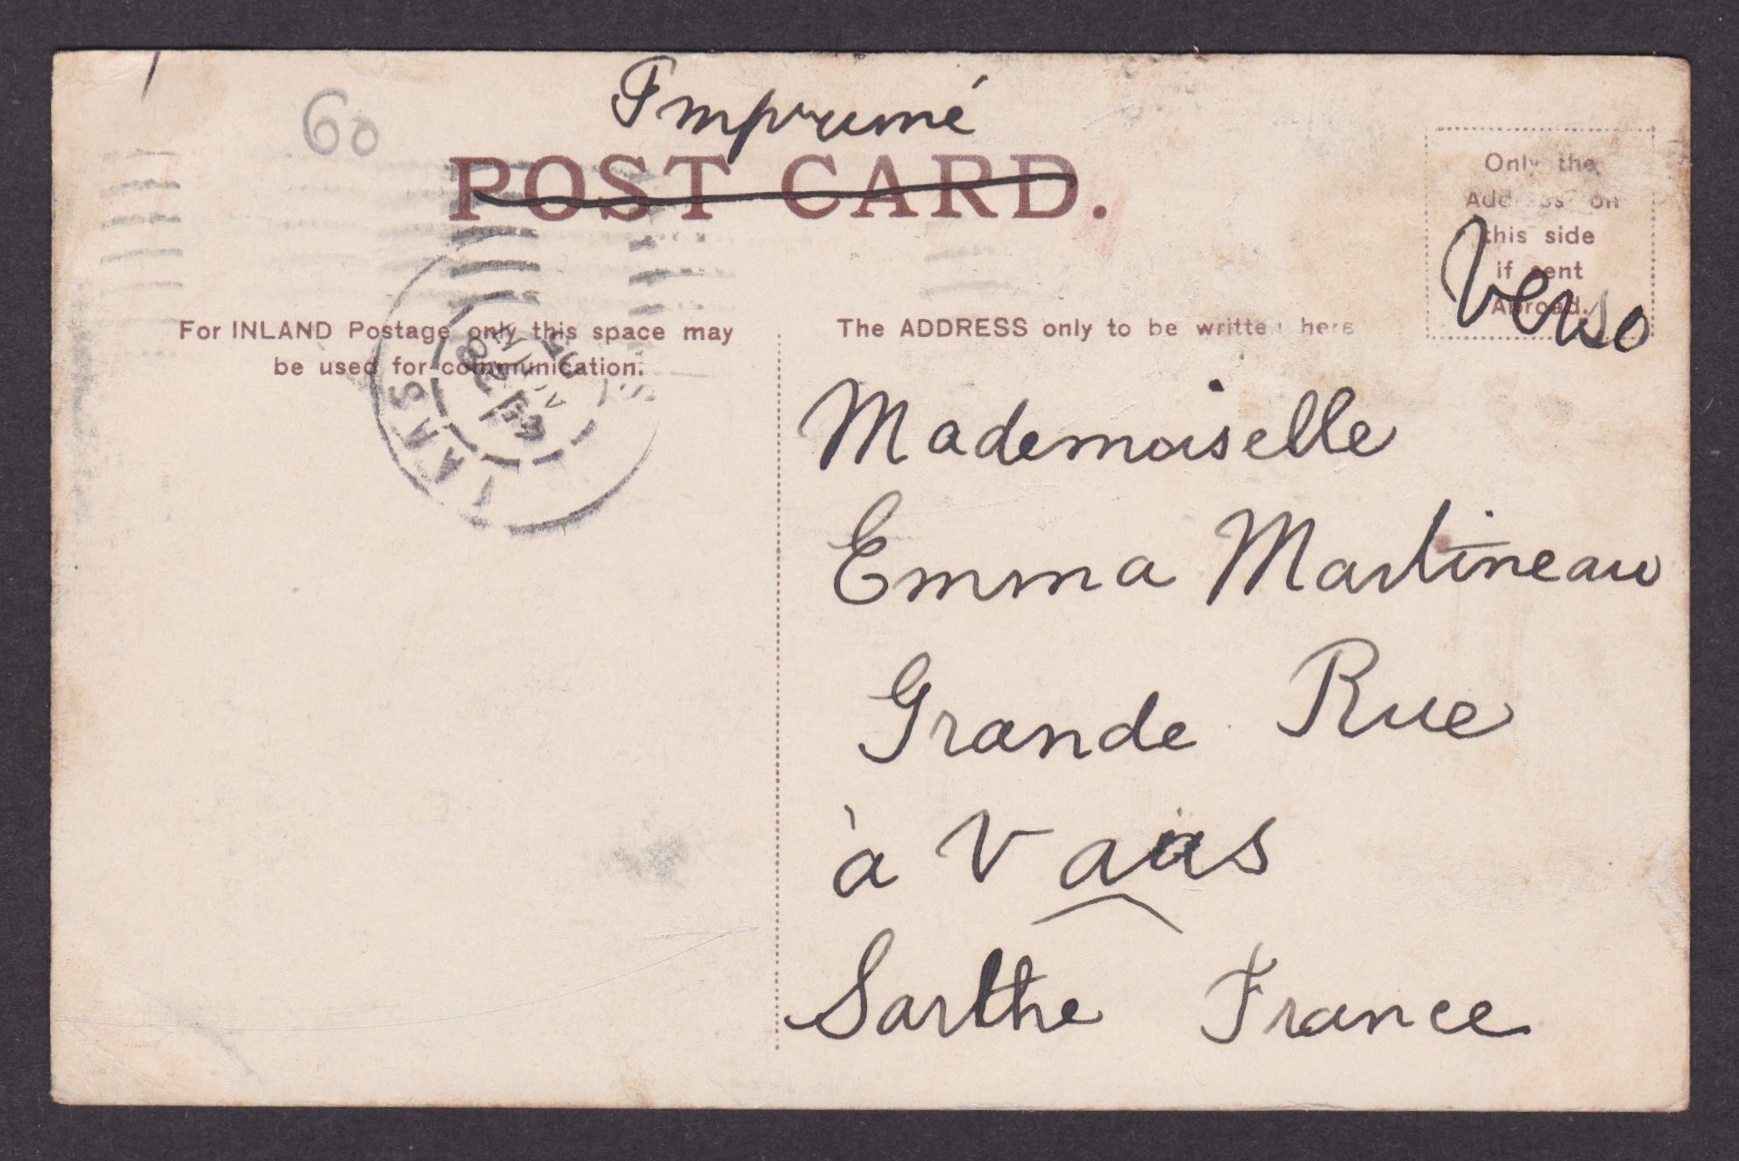 60
Imprimé
POST CARD.
Only the
Address on
this side
if sent
Abroad.
Verso
For INLAND Postage only this space may
be used for communication.
The ADDRESS only to be written here
VAAS
Mademoiselle
Emma Martineau
Grande Rue
à Vaas
Sarthe France